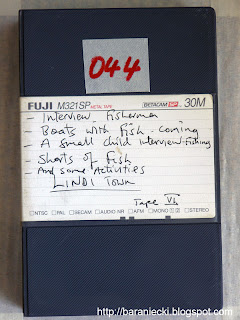 044
FUJI M321SP METAL TAPE BETACAM SP 30M
- Interview Fisherman
- Boats with fish - coming
- A small child interview - fishing
- Shorts of fish
And some Activities
LINDI TOWN
Tape VI
NTSC PAL SECAM AUDIO NR AFM MONO STEREO
http://baraniecki.blogspot.com